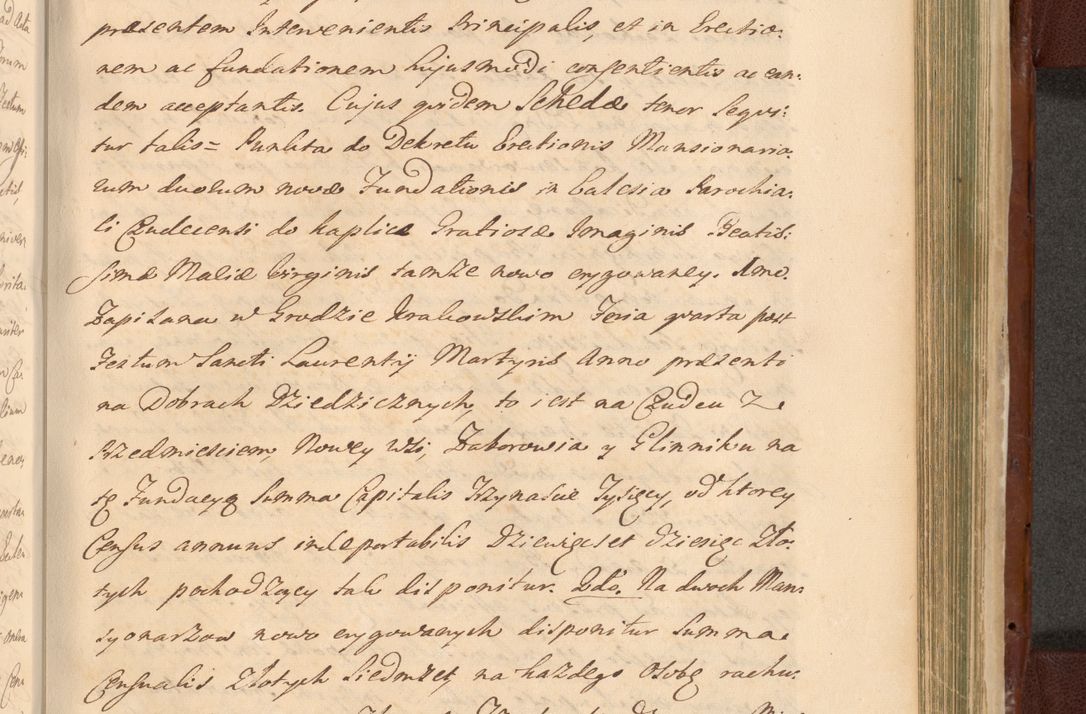 præsentem Intervenientis Principalis, et in Erectio:
nem ac fundationem hujusmodi consentientis ac ean:
dem acceptantis. Cujus quidem Schedæ tenor sequi:
tur talis= Punkta do Dekretu Erectionis Mansionaria:
rum duorum novæ Fundationis in Eclesia Parochia:
li Czudecensi do kaplice Gratiosæ Imaginis Beatis:
simæ Mariæ Virginis tamże nowo erygowaney. 1mo.
Zapisana w Grodzie Krakowskim Feria quarta post
Festum Sancti Laurentij Martyris Anno præsenti
na Dobrach Dziedzicznych, to iest na Czudcu z
Przedmieściem, Nowey wsi, Zaborowia y Glinniku na
tę Fundacyą Summa Capitalis Trzynaście Tysięcy, od ktorey
Census annuus indeportabilis Dziewięcset Dziesięć Zło:
tych pochodzący tak disponitur. 2do. Na dwoch Man:
syonarzow nowo erygowanych disponitur Summa
Censualis Złotych Siedmset, na każdego Osobę rachu: